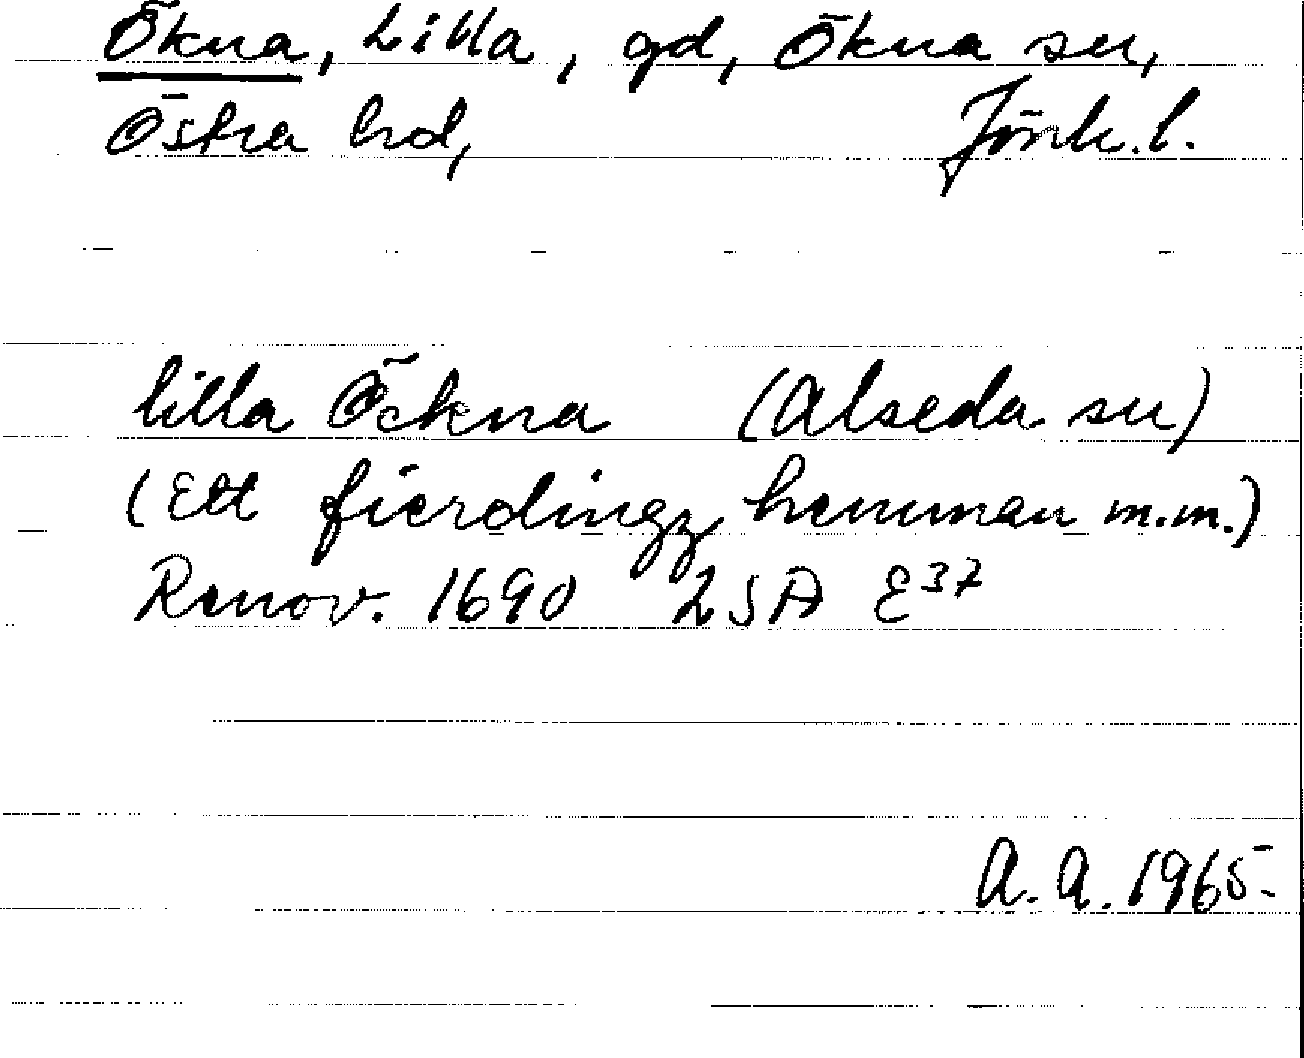 Ökna, Lilla, gd, Ökna sn,
Östra hd, Jönk. l.
lilla Öckna (Alseda sn)
(Ett fierdingz hemman m.m.)
Renov. 1690 LSA E37
A. A. 1965.